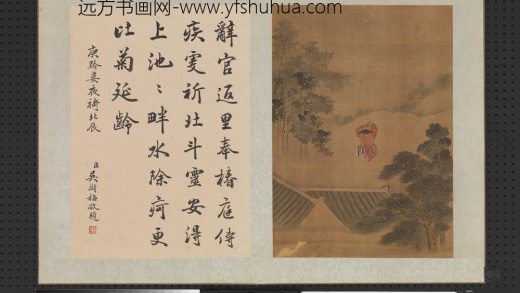 远方书画网-www.yfshuhua.com
辭官返里奉椿庭侍
疾虔祈北斗靈安得
上池〻畔水除痾更
比菊延齡
庾黔婁夜禱北辰
臣吳樹梅敬題